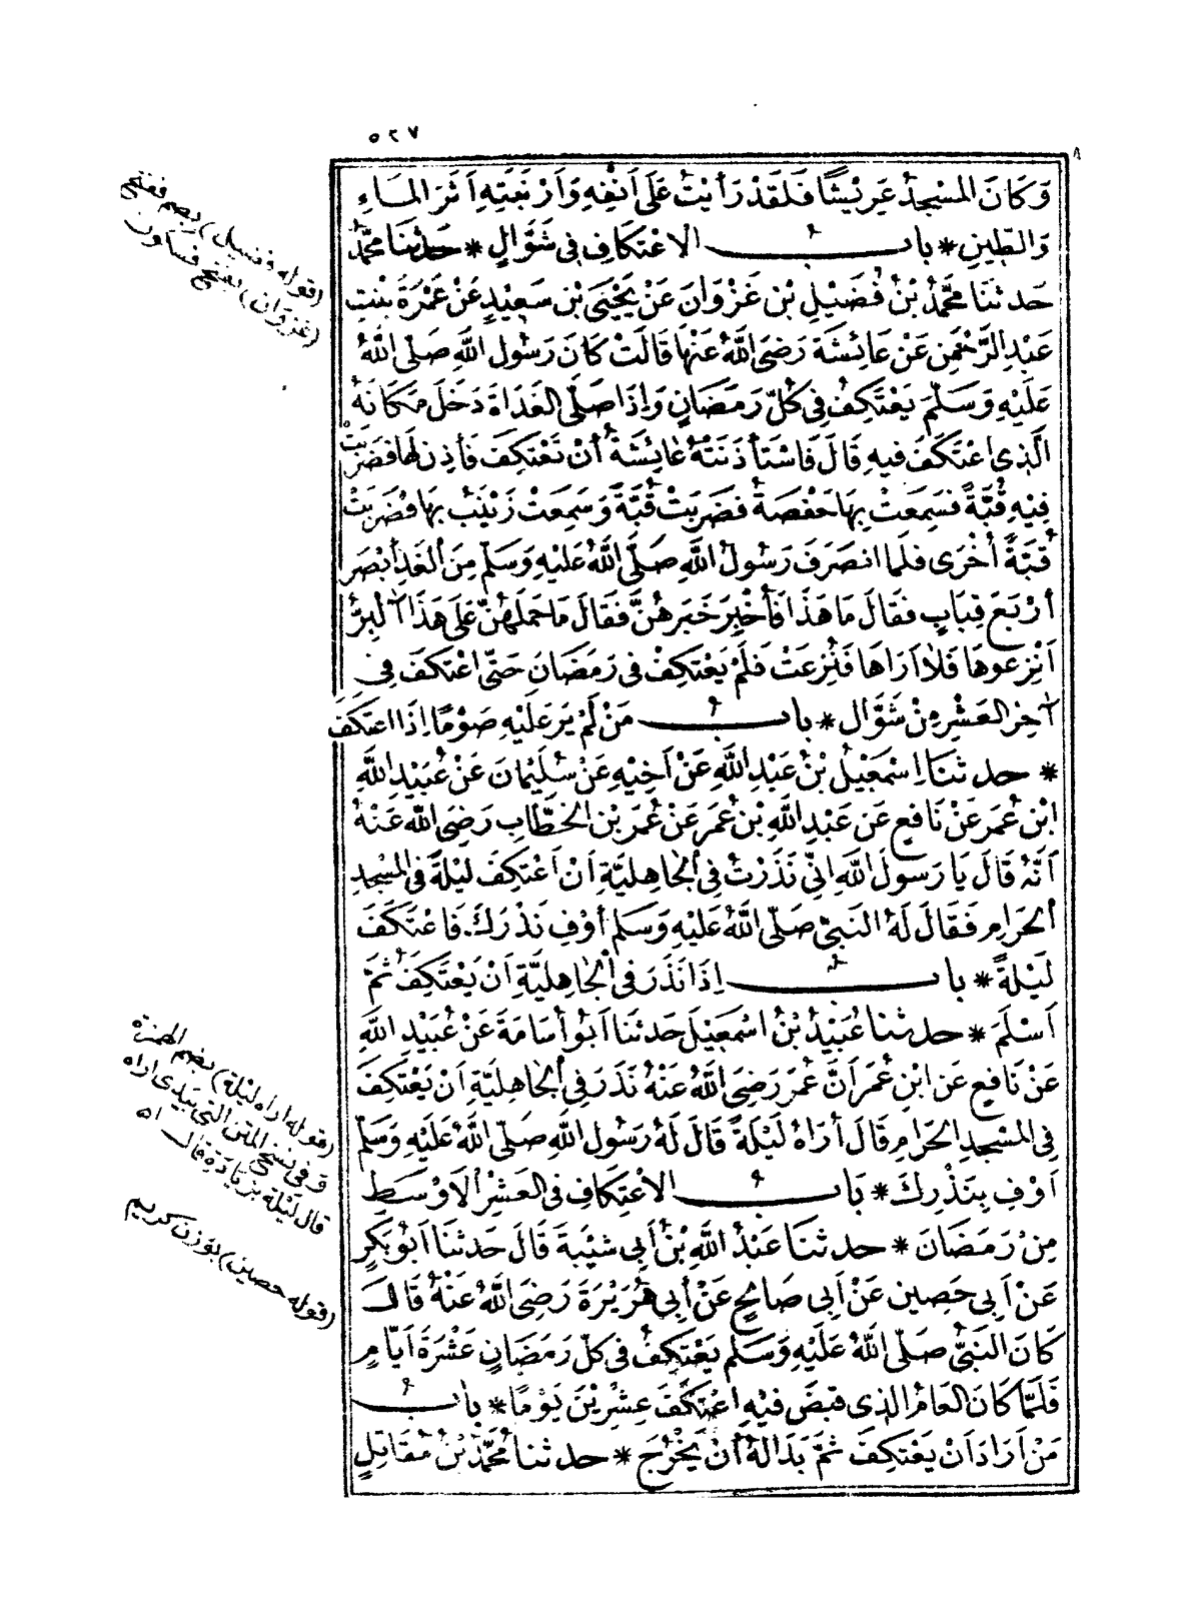 ٥٢٧
وَكَانَ المَسْجِدُ عَرِيْشًا فَلَقَدْ رَأَيْتُ عَلَى اَنْفِهِ وَاَرْنَبَتِهِ اَثَرَ المَاءِ
وَالطِّينِ * باب الاعْتِكَافِ فِى شَوَّالٍ * حَدثنَا محَمَّدُ
حَدثنَا محَمَّدُ بْنُ فُضَيْلِ بْنِ غَزْوَانَ عَنْ يَحْيَى بْنِ سَعِيْدٍ عَنْ عَمْرَةَ بِنْتِ
عَبْدِ الرَّحْمٰنِ عَنْ عَائِشَةَ رَضِىَ اللّٰهُ عَنْهَا قَالَتْ كَانَ رَسُولُ اللّٰهِ صَلّٰى اللّٰهُ
عَلَيْهِ وَسَلَّمَ يَعْتَكِفُ فِى كُلِّ رَمَضَانٍ وَاِذَا صَلَّى الغَدَاةَ دَخَلَ مَكَانَهُ
الَّذِى اعْتَكَفَ فِيهِ قَالَ فَاسْتَأْذَنَتْهُ عَائِشَةُ أَنْ تَعْتَكِفَ فَأَذِنَ لَهَا فَضَرَبَتْ
فِيْهِ قُبَّةً فَسَمِعَتْ بِهَا حَفْصَةُ فَضَرَبَتْ قُبَّةً وَسَمِعَتْ زَيْنَبُ بِهَا فَضَرَبَتْ
قُبَّةً أُخْرَى فَلَمَّا انصَرَفَ رَسُولُ اللّٰهِ صَلَّى اللّٰهُ عَلَيْهِ وَسَلَّمَ مِنَ الغَدِ أَبْصَرَ
أَرْبَعَ قِبَابٍ فَقَالَ مَا هَذَا فَأُخْبِرَ خَبَرَهُنَّ فَقَالَ مَا حَمَلَهُنَّ عَلَى هَذَا آلْبِرُّ
اَنْزِعُوهَا فَلَا اَرَاهَا فَنُزِعَتْ فَلَمْ يَعْتَكِفْ فِى رَمَضَانَ حَتَّى اعْتَكَفَ فِى
آخِرِ العَشْرِ مِنْ شَوَّالٍ * باب مَنْ لَمْ يَرَ عَلَيْهِ صَوْمًا اِذَا اعتَكَفَ
* حدثنَا اِسْمٰعِيْلُ بْنُ عَبْدِ اللّٰهِ عَنْ اَخِيْهِ عَنْ سُلَيْمَانَ عَنْ عُبَيْدِ اللّٰهِ
ابْنِ عُمَرَ عَنْ نَافِعٍ عَن عَبْدِ اللّٰهِ بْنِ عُمَرَ عَنْ عُمَرَ بْنِ الخَطَّابِ رَضِىَ اللّٰهُ عَنْهُ
اَنَّهُ قَالَ يَا رَسُولَ اللّٰهِ اِنِّى نَذَرْتُ فِى الجَاهِلِيَّةِ اَنْ اَعْتَكِفَ لَيْلَةً فِى المَسْجِدِ
الحَرَامِ فَقَالَ لَهُ النَبِىُّ صَلَّى اللّٰهُ عَلَيْهِ وَسَلَّمَ أَوْفِ نَذْرَكَ فَاعْتَكَفَ
لَيْلَةً * باب اِذَا نَذَرَ فِى الجَاهِلِيَّةِ اَنْ يَعْتَكِفَ ثُمَّ
اَسْلَمَ * حدثنا عُبَيْدُ بْنُ اسْمٰعِيْلَ حَدثنَا اَبُو أُسَامَةَ عَنْ عُبَيْدِ اللّٰهِ
عَنْ نَافِعٍ عَنِ ابْنِ عُمَرَ اَنَّ عُمَرَ رَضِىَ اللّٰهُ عَنْهُ نَذَرَ فِى الجَاهِلِيَّةِ اَنْ يَعْتَكِفَ
فِى المَسْجِدِ الحَرَامِ قَالَ أُرَاهُ لَيْلَةً قَالَ لَهُ رَسُولُ اللّٰهِ صَلَّى اللّٰهُ عَلَيْهِ وَسَلَّمَ
اَوْفِ بِنَذْرِكَ * بَاب الاعْتِكَافِ فِى العَشْرِ الاَوْسَطِ
مِنْ رَمَضَانَ * حدثنَا عَبْدُ اللّٰهِ بْنُ اَبِى شَيْبَةَ قَالَ حَدثنَا اَبُو بَكْرٍ
عَنْ اَبِى حَصِينٍ عَنْ اَبِى صَالِحٍ عَنْ أَبِى هُرَيْرَةَ رَضِىَ اللّٰهُ عَنْهُ قَالَ
كَانَ النَبِىُّ صَلَّى اللّٰهُ عَلَيْهِ وَسَلَّمَ يَعْتَكِفُ فِى كُلِّ رَمَضَانٍ عَشْرَةَ اَيَّامٍ
فَلَمَّا كَانَ العَامُ الذِى قُبِضَ فِيْهِ اعْتَكَفَ عِشْرِيْنَ يَوْمًا * باب
مَنْ اَرَادَ اَنْ يَعْتَكِفَ ثُمَّ بَدَا لَهُ أَنْ يَخْرُجَ * حدثنا مُحَمَّدُ بْنُ مُقَاتِلٍ
(قوله فضيل) بضم ففتح
(غزوان) بفتح فسكون
(قوله اراه ليلة) بضم الهمزة
وفى نسخ المتن التى بيدى اراه
قال ليلة بزيادة قال اه
(قوله حصين) بوزن كريم